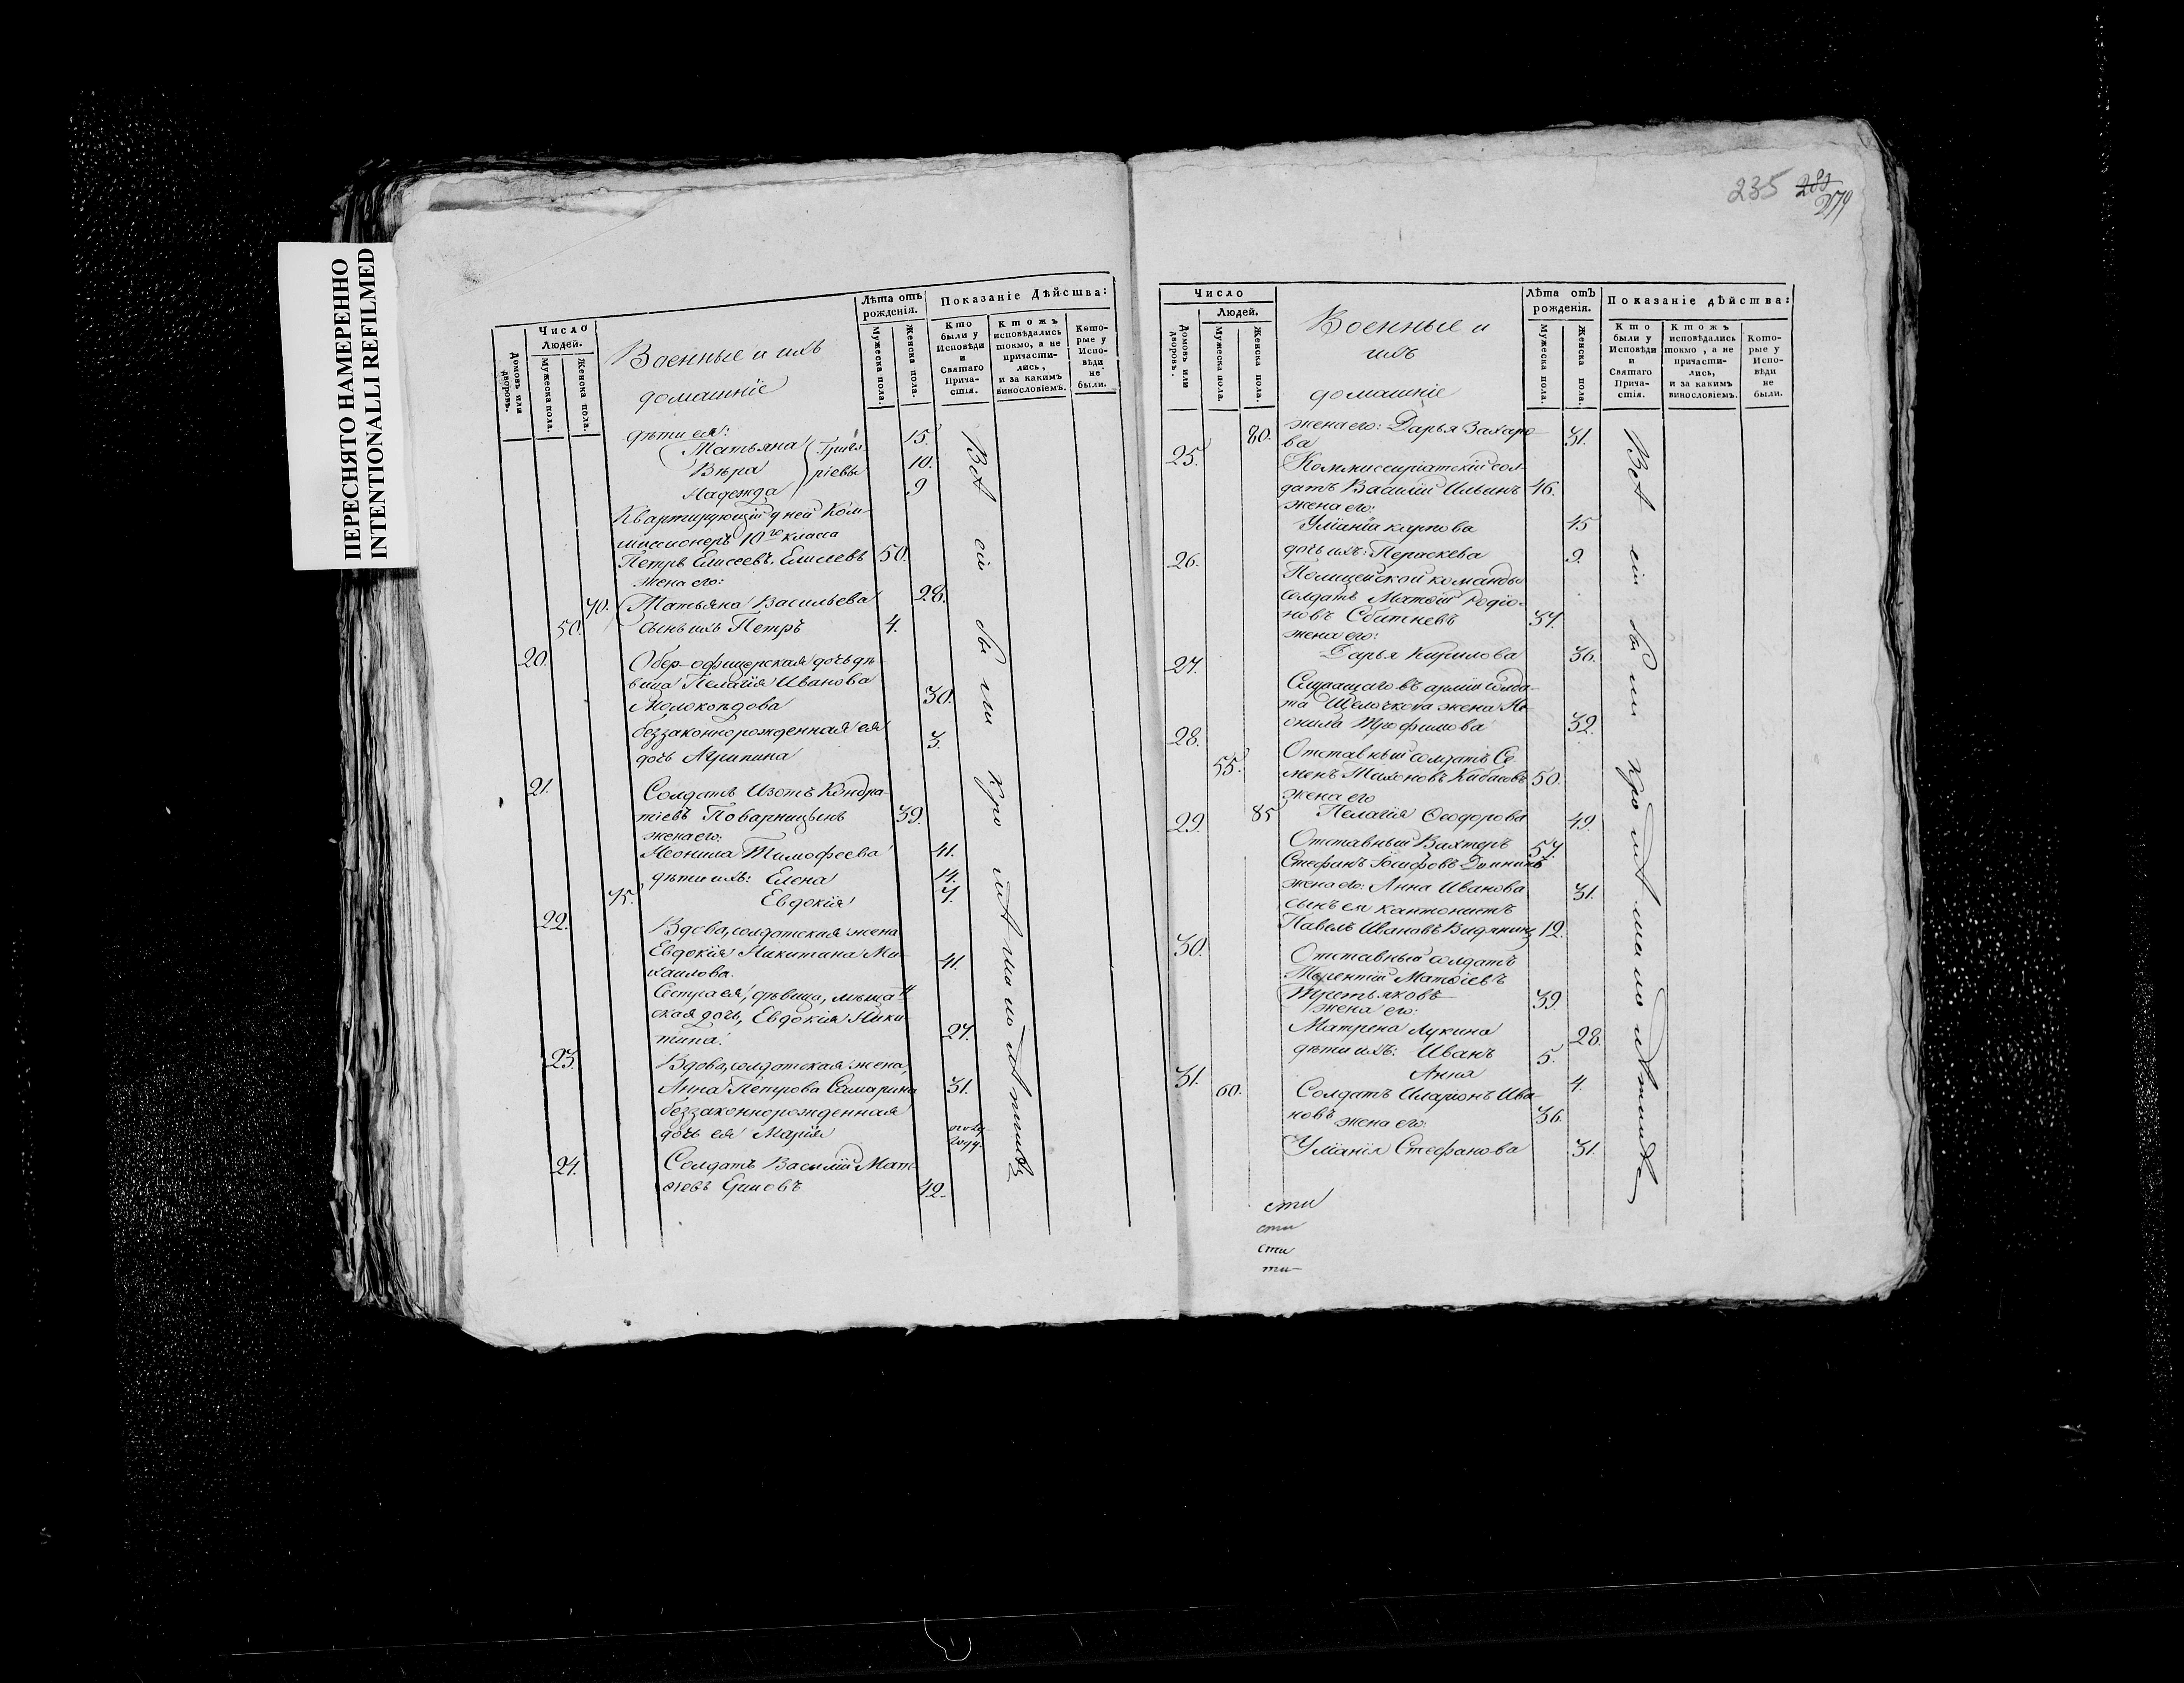 ПЕРЕСНЯТО НАМЕРЕННО
INTENTIONALLI REFILMED
235 289
279
Число
Людей.
Домовъ или дворовъ.
Мужеска пола.
Женска пола.
Военные и ихъ
домашніе
Лѣта отъ рожденія.
Мужеска пола.
Женска пола.
Показаніе Дѣйства:
Кто были у Исповѣди и Святаго Прича-стія.
Ктожъ исповѣдались токмо, а не причасти-лись, и за какимъ винословіемъ.
Кото-рые у Испо-вѣди не были.
дѣти ея:
Татьяна 15.
Вѣра 10.
Надежда 9
Григо-
ріевы
Квартирующій у ней Ком-
миссіонеръ 10го класса
Петръ Елисеевъ Елисеевъ 50.
жена его:
70. Татьяна Васильева 28.
50. сынъ ихъ Петръ 4.
20. Обер-офицерская дочь дѣ-
вица Пелагія Иванова
30.
беззаконнорожденная ея
дочь Агрипина 3.
21. Солдатъ Изотъ Кондра-
тіевъ Поварницынъ 39.
жена его:
Неонила Тимофеева 41.
дѣти ихъ: Елена 14.
75. Евдокія 7.
22. Вдова, солдатская жена
Евдокія Никитина Ми-
хаилова. 41.
Сестра ея, дѣвица, мѣщан
ская дочь, Евдокія Ники-
тина. 27.
23. Вдова, солдатская жена,
Анна Петрова Самарина 31.
беззаконнорожденная
дочь ея Марія полу
году.
24. Солдатъ Василій Мат-
ѳевъ 42.
Всѣ сіи были кромѣ малолѣтныхъ
Число
Людей.
Домовъ или дворовъ.
Мужеска пола.
Женска пола.
Военные и
ихъ
домашніе
Лѣта отъ рожденія.
Мужеска пола.
Женска пола.
Показаніе дѣйства:
Кто были у Исповѣди и Святаго Прича-стія.
Ктожъ исповѣдались токмо, а не причасти-лись, и за какимъ винословіемъ.
Кото-рые у Испо-вѣди не были.
80. жена его: Дарья Захаро-
ва 31.
25. Коммиссаріатскій сол-
датъ Василій Ильинъ 46.
жена его:
Уліанія Карпова 45
дочь ихъ: Параскева 9.
26. Полицейской команды
солдатъ Матѳій Родіо-
новъ Сбитневъ 37.
жена его:
Дарья Кирилова 36.
27. Служащаго въ арміи солда-
та Щелочкова жена Не-
онила Трофимова 32.
28. Отставный солдатъ Се-
55. менъ Тихоновъ 50.
жена его
85 Пелагія Ѳеодорова 49.
29. Отставный Вахтеръ 57.
Стефанъ Іосифовъ
жена его: Анна Иванова 31.
сынъ ея кантонистъ
Павелъ Ивановъ 12.
30. Отставный солдатъ
Терентій Матѳіевъ
Третьяковъ 39.
жена его:
Матрена Лукина 28.
дѣти ихъ: Иванъ 5.
Анна 4.
31. 60. Солдатъ Иларіонъ Ива-
новъ 36.
жена его:
Уліанія Стефанова 31.
Всѣ сіи были кромѣ малолѣтныхъ
сти
сти
сти
ти